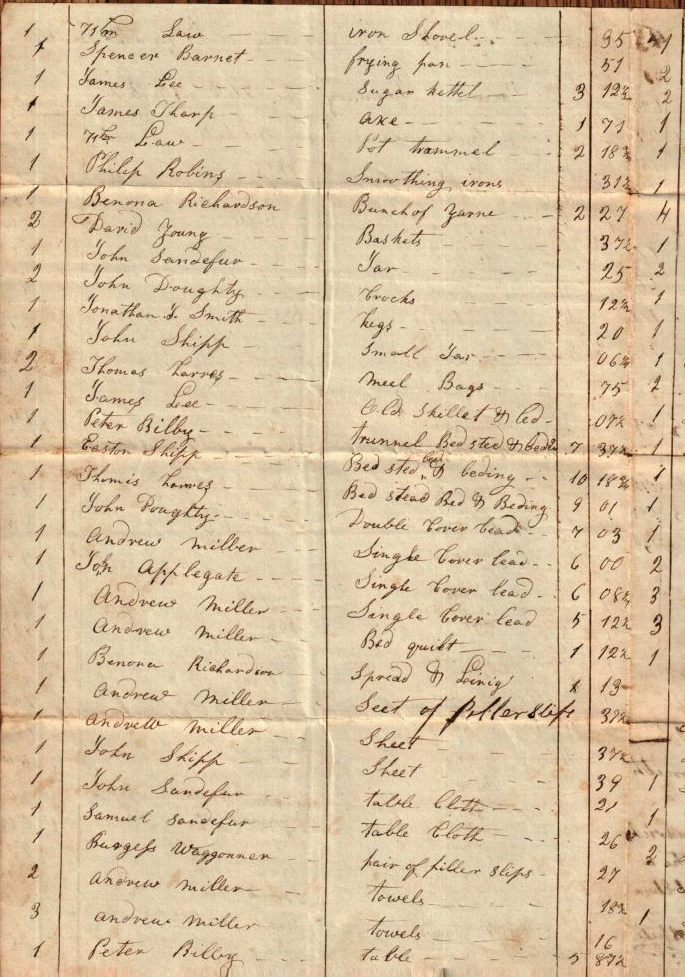 1 Wm Law iron Shovel 95 4
1 Spencer Barnet frying pan 51 2
1 James Lee Sugar kettel 3 12½ 2
1 James Tharp axe 1 71 1
1 Wm Law Pot trammel 2 18¾ 1
1 Philip Robins Smoothing irons 31¼ 1
1 Benona Richardson Bunch of Yarne 2 27 4
2 David Young Baskets 37½ 1
1 John Sandefur Jar 25 2
2 John Doughty Crocks 12½ 1
1 Jonathan J Smith kegs 20 1
1 John Shipp Small Jar 06¼ 1
2 Thomas Larves meel Bags 75 2
1 James Lee Old Skillet & led 07½ 1
1 Peter Bilby trunnel Bed sted & beding 7 37½ 1
1 Easton Shipp Bed sted bed & beding 10 18¾ 1
1 Thomis Larves Bed stead Bed & Beding 9 01 1
1 John Doughty Double Cover lead 7 03 1
1 Andrew Miller Single Cover lead 6 00 2
1 John Applegate Single Cover lead 6 08½ 3
1 Andrew Miller Single Cover lead 5 12½ 3
1 Andrew Miller Bed quilt 1 12½ 1
1 Benona Richardson Spread & 1 13
1 Andrew Miller Seet of Piller Slips 37½
1 Andrew Miller Sheet 37½
1 John Shipp Sheet 39 1
1 John Sandefur table Cloth 21 1
1 Samuel Sandefur table Cloth 26 2
1 Burgess Waggonner pair of piller slips 27
2 Andrew Miller towels 18¾ 1
3 Andrew Miller towels 16
1 Peter Bilby table 5 87½